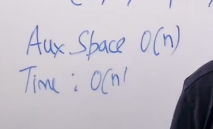 Aux Space O(n)
Time : O(n